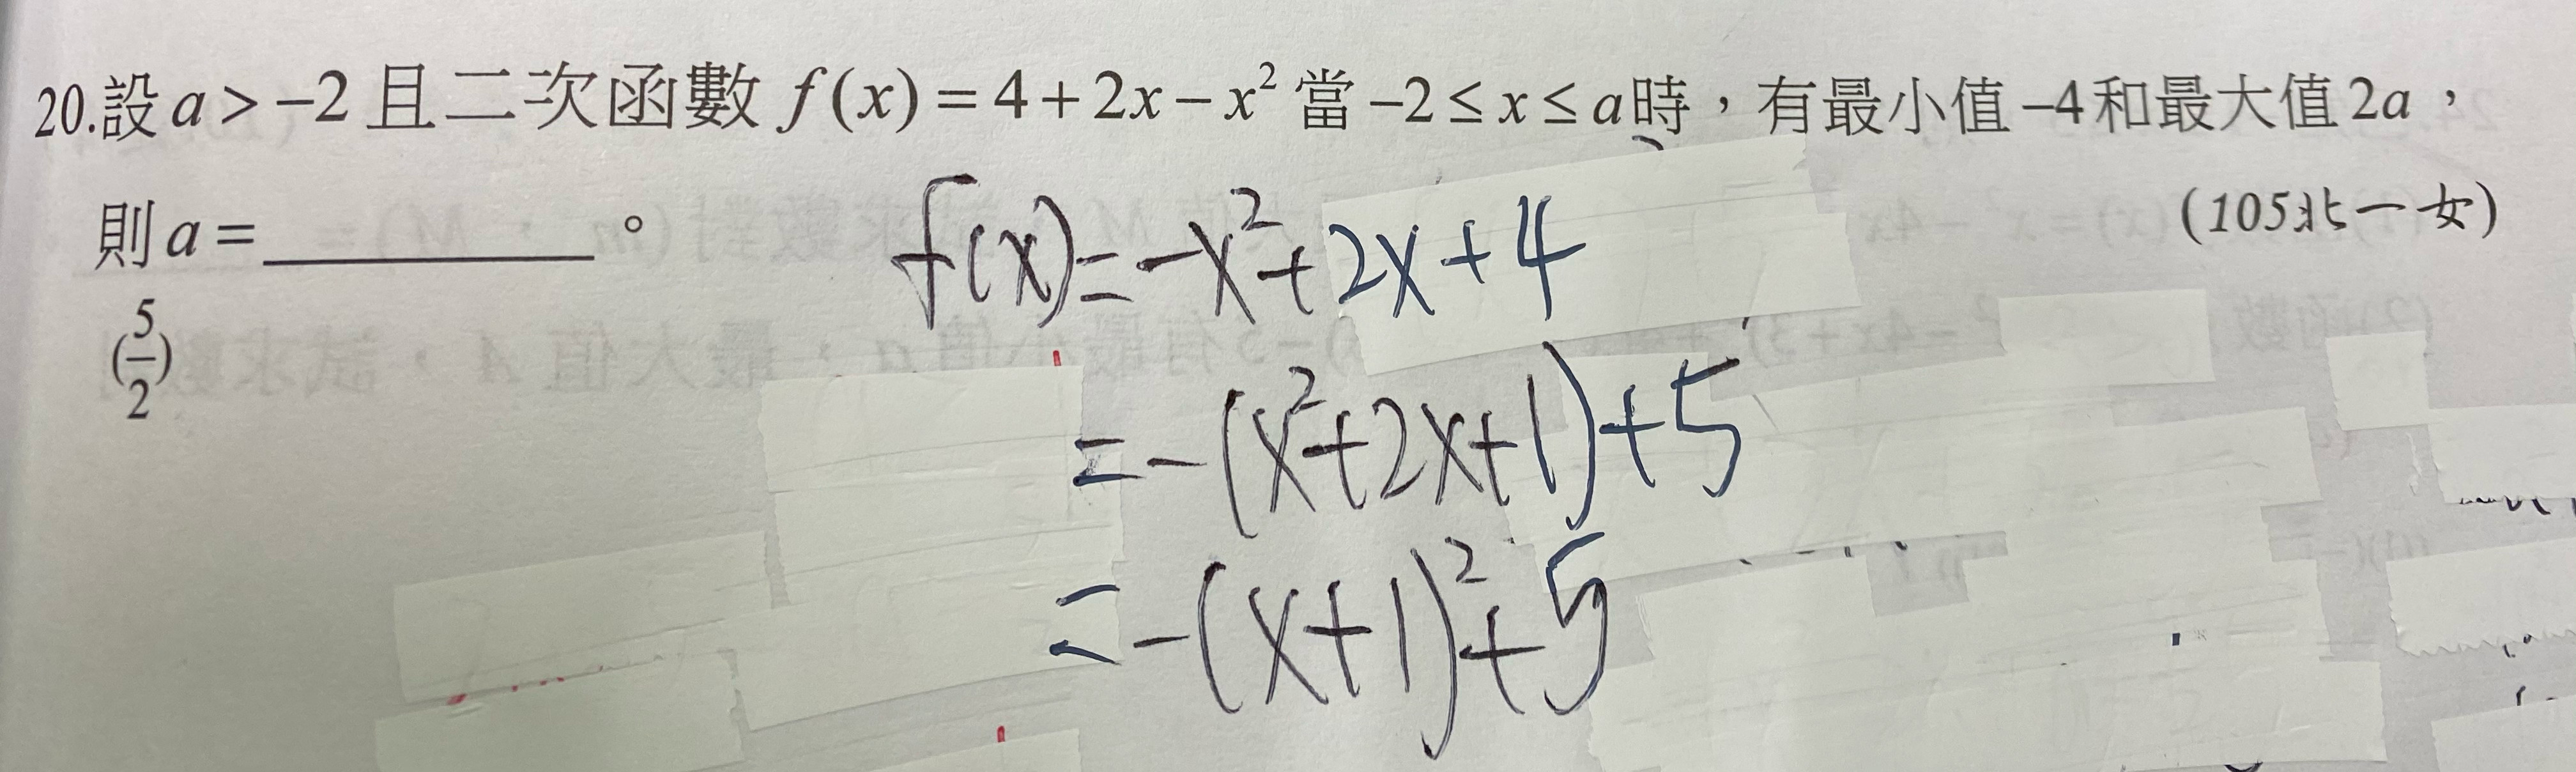 20.設 a > −2 且二次函數 f(x) = 4 + 2x − x² 當 −2 ≤ x ≤ a 時，有最小值 −4 和最大值 2a，
則 a = ＿＿＿＿＿＿。 (105北一女)
(5/2)
f(x) = -x²+2x+4
= -(x²+2x+1)+5
= -(x+1)²+5